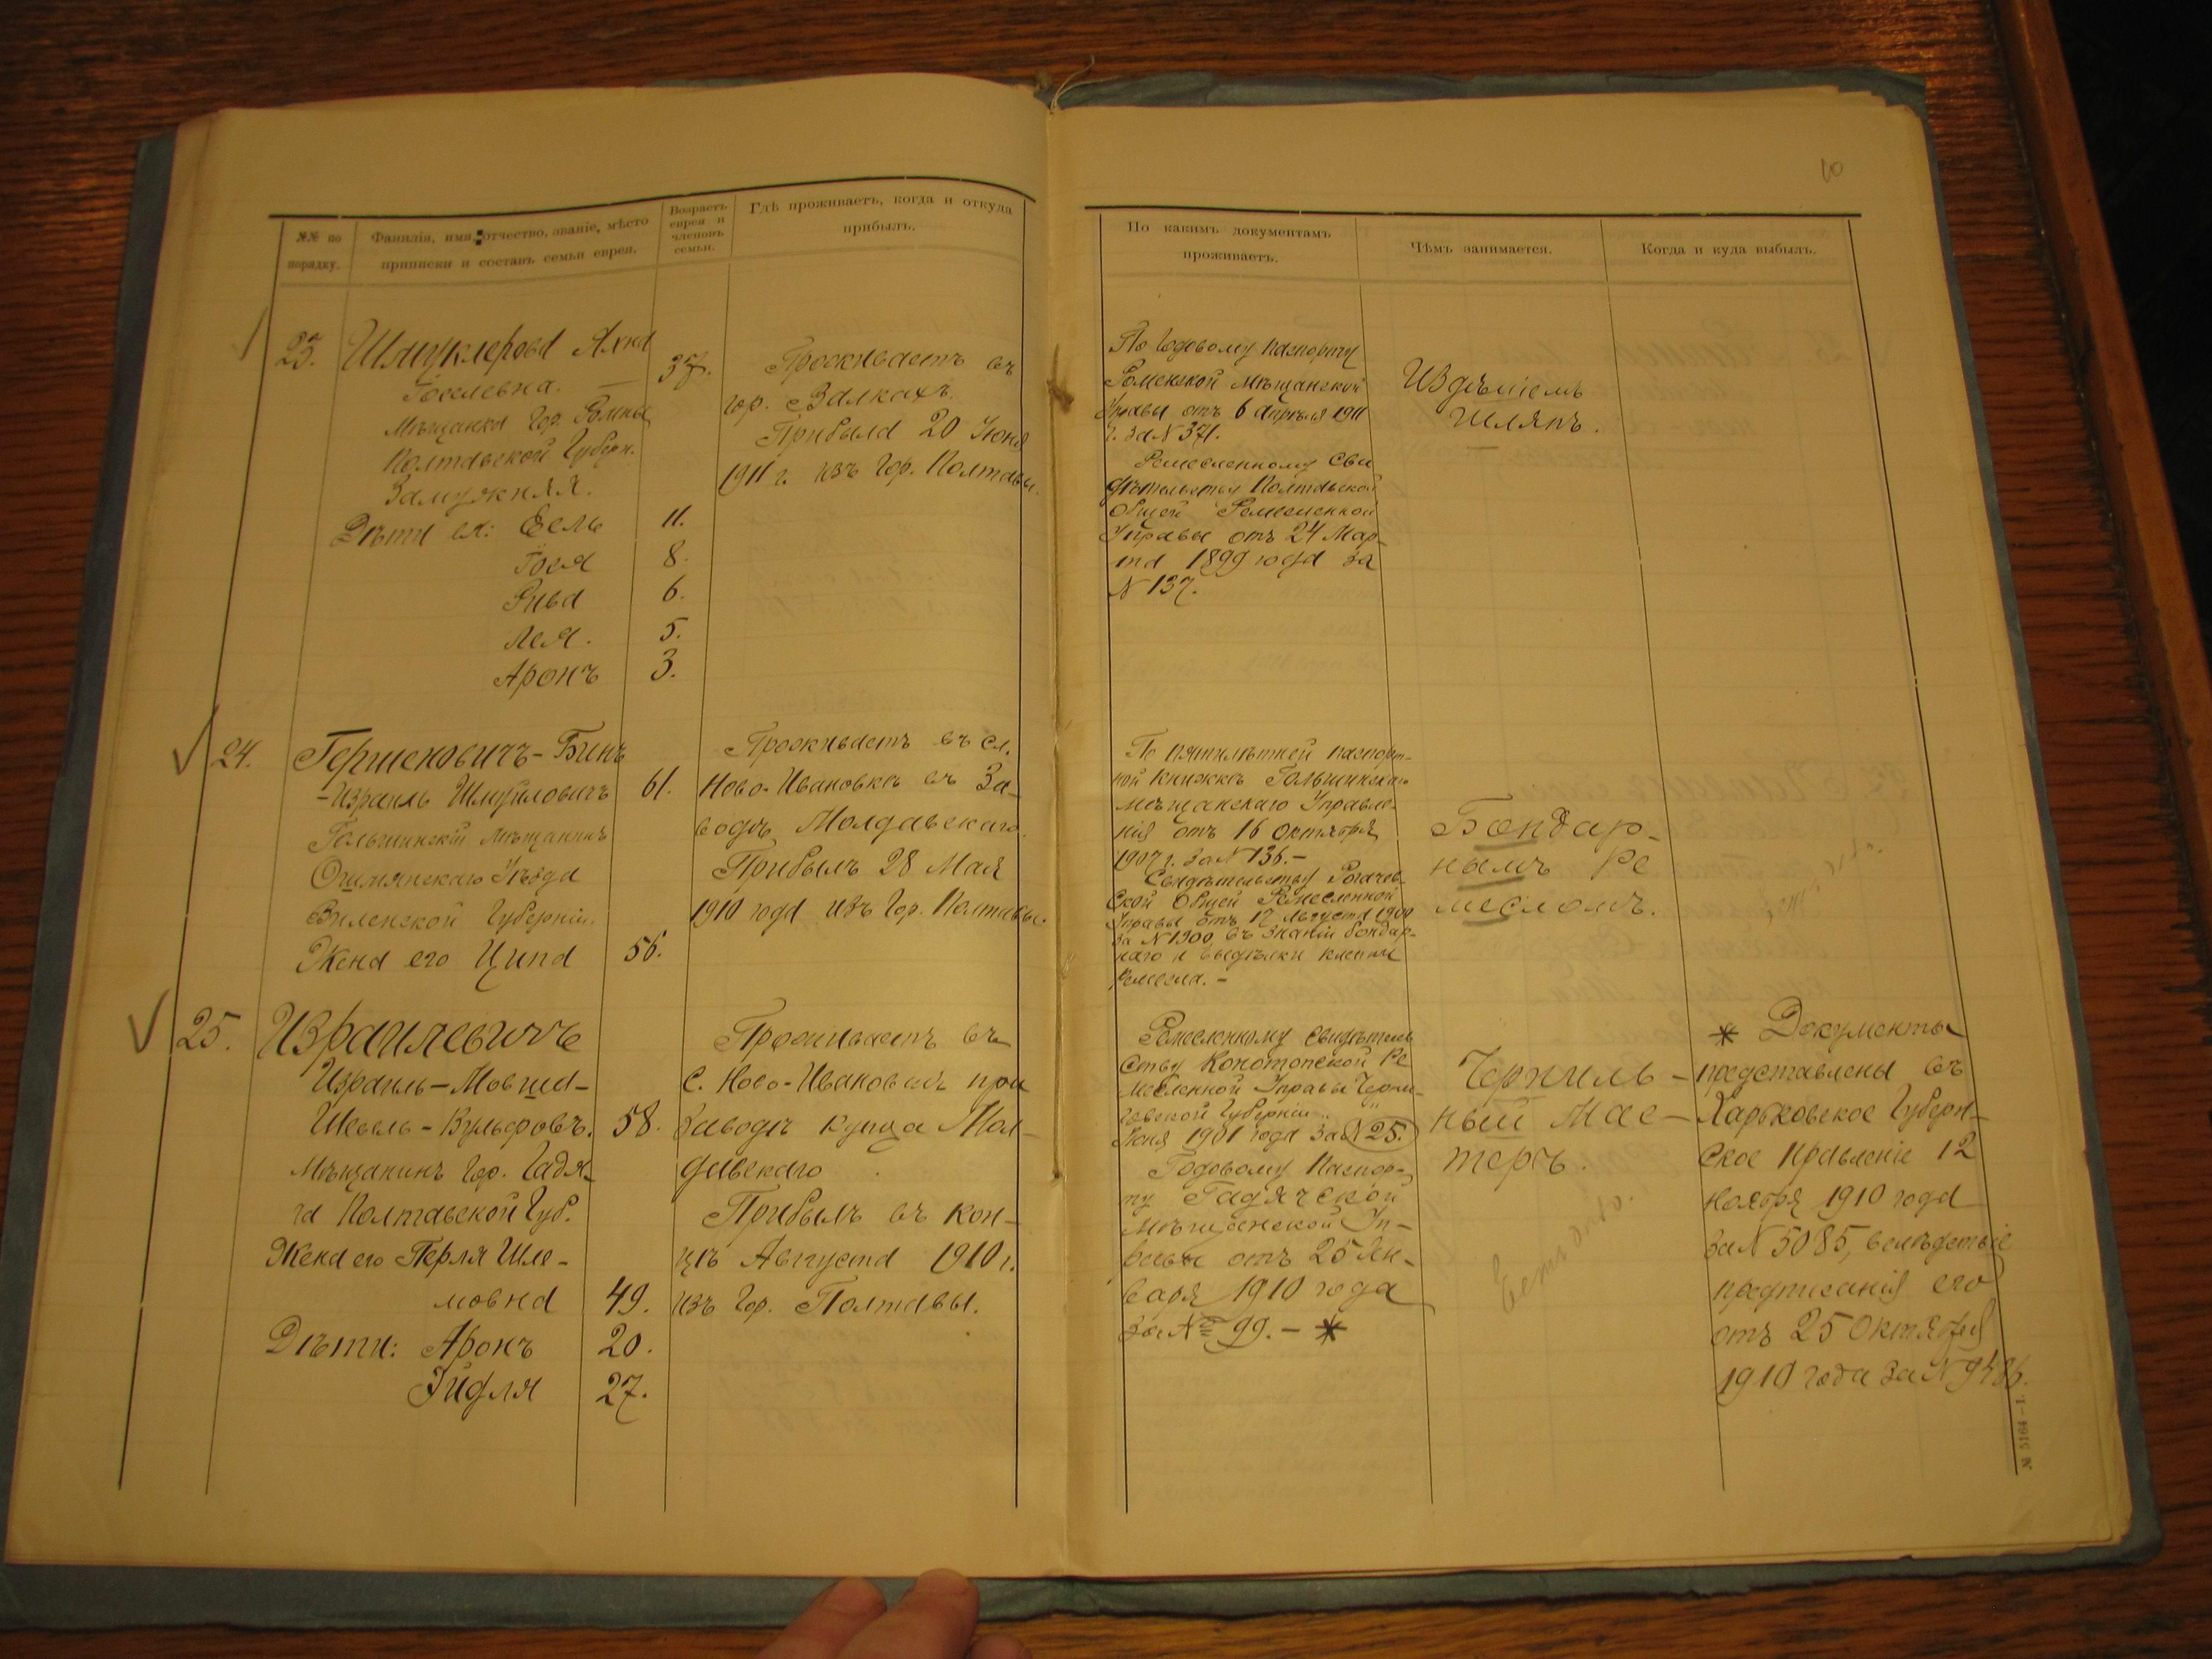 10
№№ по порядку.
Фамилія, имя, отчество, званіе, мѣсто приписки и составъ семьи еврея.
Возрастъ еврея и членовъ семьи.
Гдѣ проживаетъ, когда и откуда прибылъ.
По какимъ документамъ проживаетъ.
Чѣмъ занимается.
Когда и куда выбылъ.
23.
Шмуклерова Яхна
Іоселевна. —
Мѣщанка гор. Ромны
Полтавской Губерн.
Замужняя.
37.
Дѣти ея: Есель 11.
Гося 8.
Рива 6.
Лея. 5.
Аронъ 3.
Проживаетъ въ
гор. Валкахъ.
Прибыла 20 Іюня
1911 г. изъ Гор. Полтавы.
По годовому паспорту
Роменской Мѣщанской
Управы отъ 6 Апрѣля 1911
г. за N 371.
Ремесленному Сви
дѣтельству Полтавской
Общей Ремесленной
Управы отъ 24 Мар-
та 1899 года за
N 137.
Издѣліемъ
Шляпъ.
24.
Гершеновичъ-Бинъ
-Израиль Шмуйловичъ 61.
Гольшинскій мѣщанинъ
Ошмянскаго Уѣзда
Виленской Губерніи.
Жена его Ципа 56.
Проживаетъ въ сл.
Ново-Ивановкѣ въ За-
водѣ Молдавскаго.
Прибылъ 28 Мая
1910 года изъ Гор. Полтавы.
По пятилѣтней паспорт-
ной книжкѣ Гольшинскаго
мѣщанскаго Управле-
нія отъ 16 Октября
1907 г. за N 136.-
Свидѣтельству Рогачев-
ской Общей Ремесленной
Управы отъ 17 Августа 1900
за N 1900, въ знаніи бондар-
наго и выдѣлки клепки
Ремесла. -
Бондар-
нымъ Ре
месломъ.
25.
Израилевичъ
Израиль-Мовша-
Шевель-Вульфовъ. 58.
Мѣщанинъ Гор. Гадя-
ча Полтавской Губ.
Жена его Перля Шле-
мовна 49.
Дѣти: Аронъ 20.
Эйдля 27.
Проживаетъ въ
с. Ново-Ивановкѣ при
Заводѣ купца Мол-
давскаго
Прибылъ въ кон-
цѣ Августа 1910 г.
изъ Гор. Полтавы.
Ремесленному Свидѣтель
ству Конотопской Ре
месленной Управы Черни-
говской Губерніи
Іюня 1901 года за N 25.
Годовому Паспор-
ту Гадячской
Мѣщанской Уп-
равы отъ 25 Ян-
варя 1910 года
за № 99. - *
Черниль-
ный Мас-
теръ.
* Документы
представлены въ
Харьковское Губерн-
ское Правленіе 12
Ноября 1910 года
за N 5085, вслѣдствіе
предписанія его
отъ 25 Октября
1910 года за N
№ 5164 – 1.